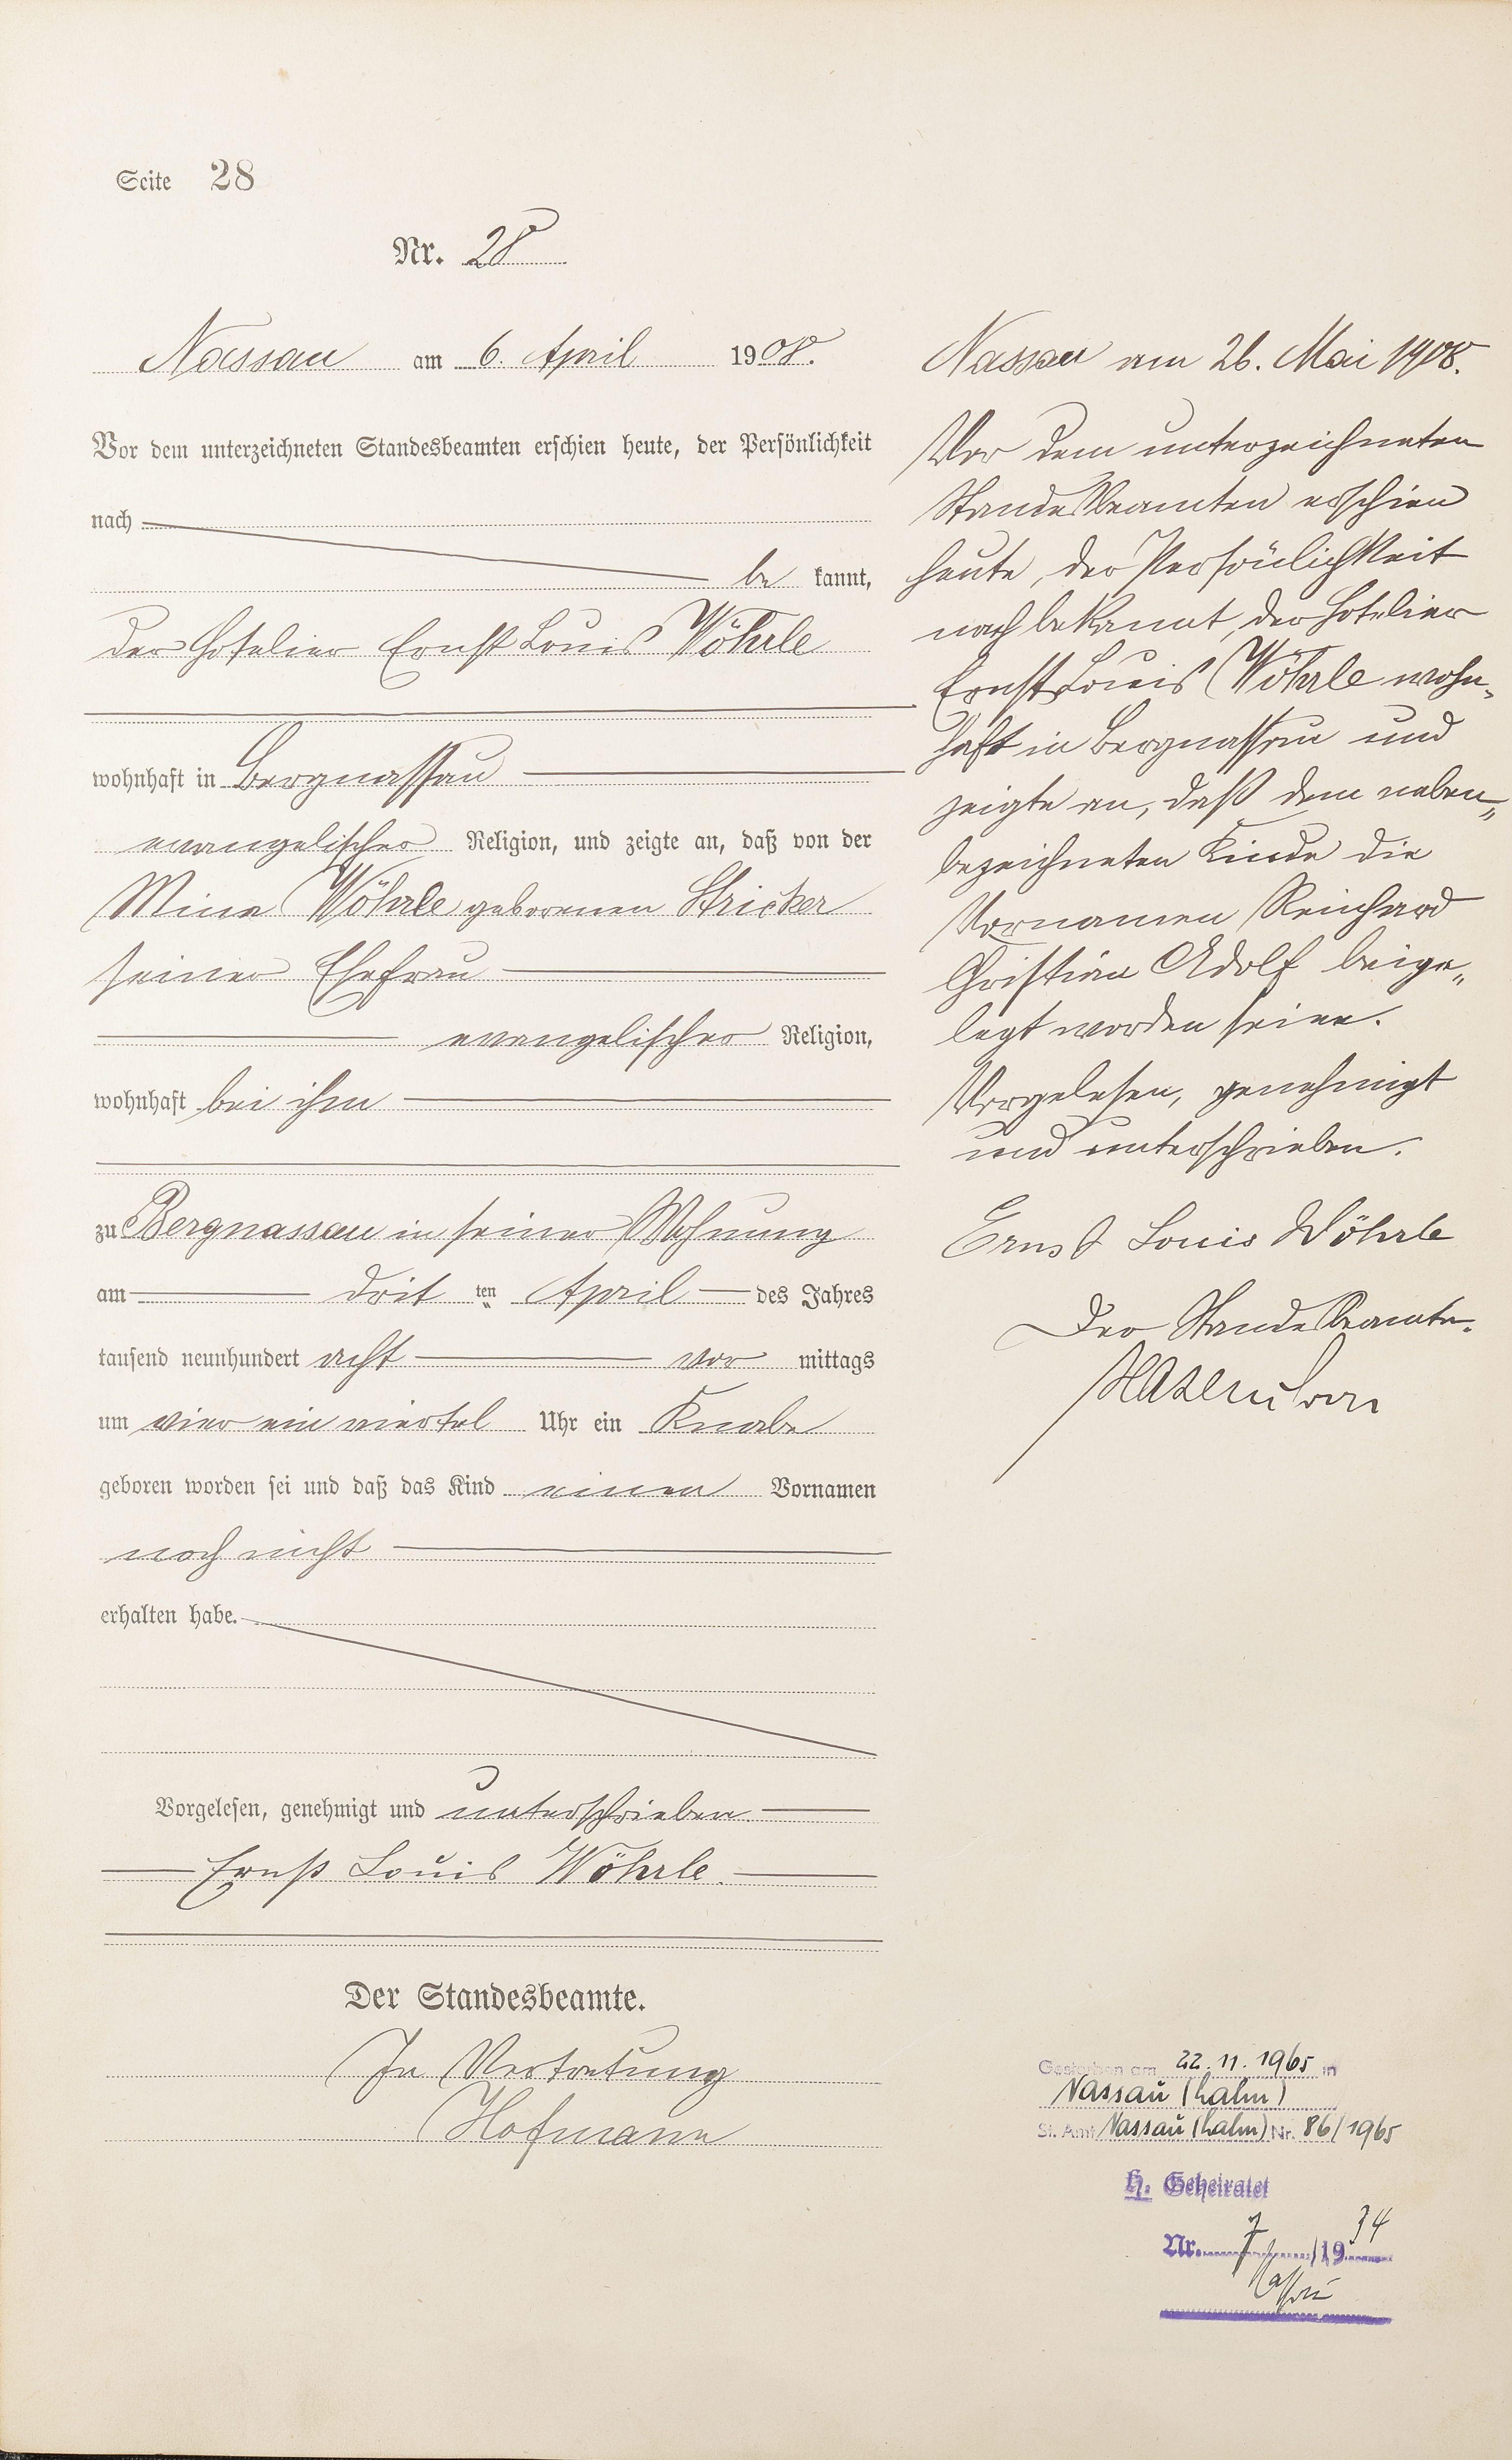 Seite 28
Nr. 28
Nassau am 6. April 1908.
Vor dem unterzeichneten Standesbeamten erschien heute, der Persönlichkeit
nach
be kannt,
der Hotelier Ernst Louis Wöhrle
wohnhaft in Bergnassau
evangelischer Religion, und zeigte an, daß von der
Mina Wöhrle geborenen Stricker
seiner Ehefrau
evangelischer Religion,
wohnhaft bei ihm
zu Bergnassau in seiner Wohnung
am drit ten April des Jahres
tausend neunhundert acht vor mittags
um vier ein viertel Uhr ein Knabe
geboren worden sei und daß das Kind einen Vornamen
noch nicht
erhalten habe.
Vorgelesen, genehmigt und unterschrieben.
Ernst Louis Wöhrle.
Der Standesbeamte.
In Vertretung
Hofmann
Nassau am 26. Mai 1908.
Vor dem unterzeichneten
Standesbeamten erschien
heute, der Persönlichkeit
nach bekannt, der Hotelier
Ernst Louis Wöhrle wohn„
haft in Bergnassau und
zeigte an, daß dem neben„
bezeichneten Kinde die
Vornamen Reinhard
Christian Adolf beige„
legt worden seien.
Vorgelesen, genehmigt
und unterschrieben.
Ernst Louis Wöhrle
Der Standesbeamte.
Gestorben am 22.11.1965 in
Nassau (Lahn)
St. Amt Nassau (Lahn) Nr. 86/1965
H. Geheiratet
Nr. 7 /1934
Nassau